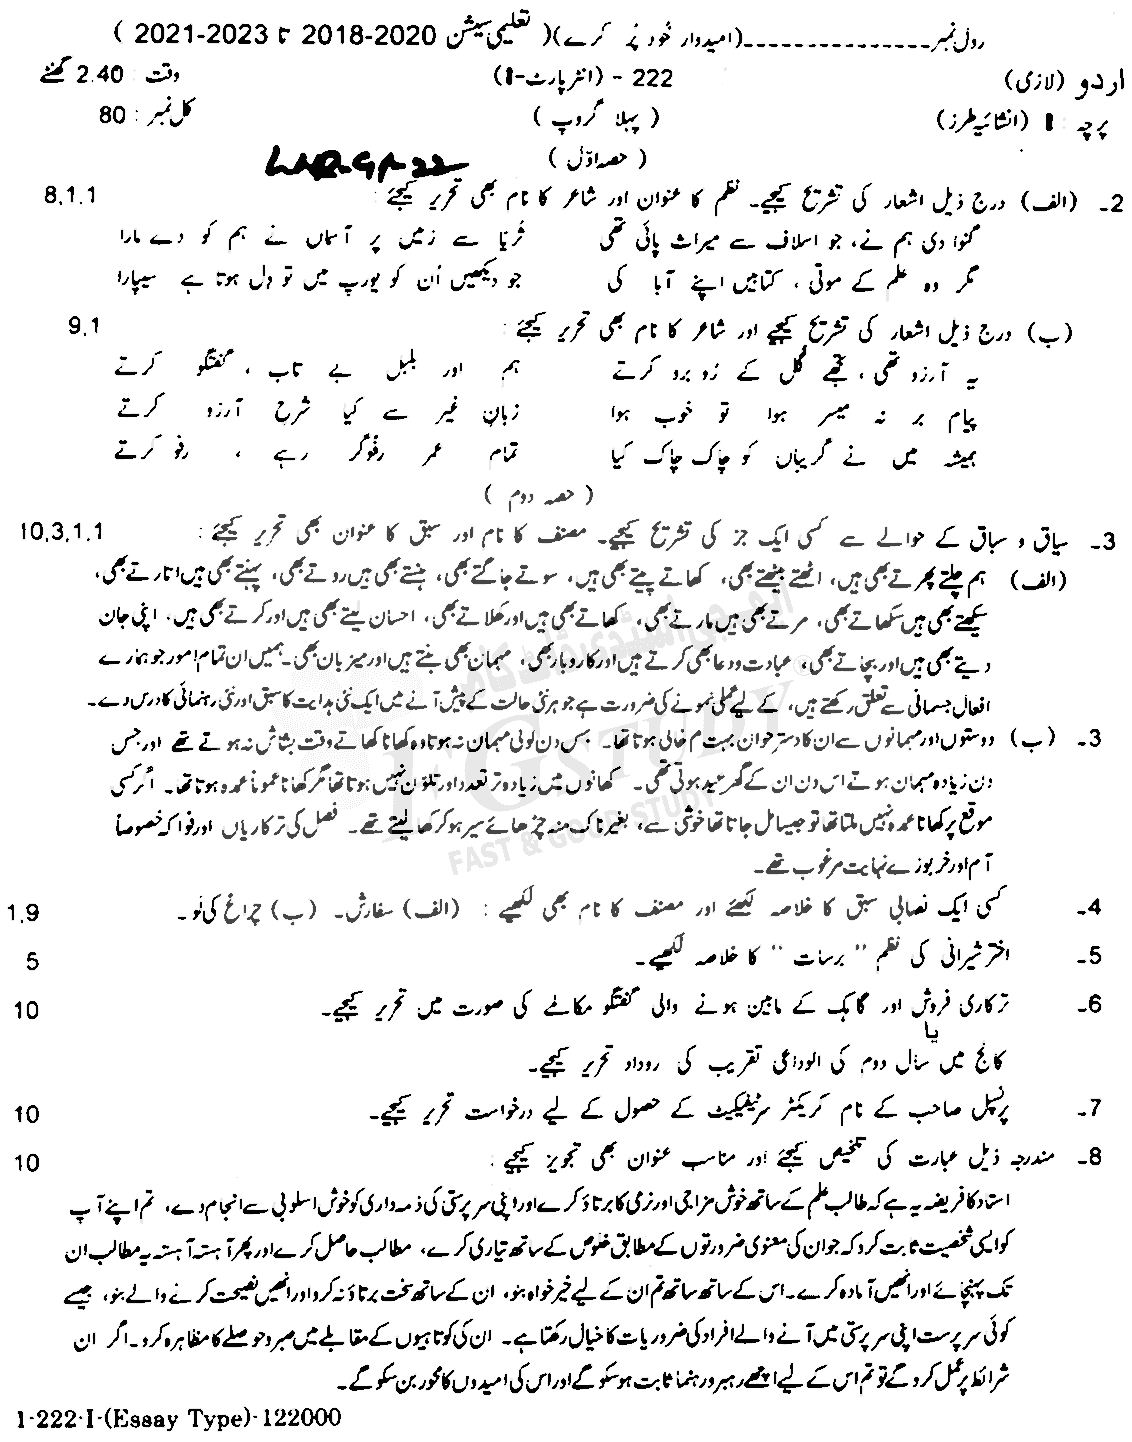 رول نمبر ـــــــــــــــــــــ (امیدوار خود پُر کرے) ( تعلیمی سیشن 2018-2020 تا 2021-2023 )
اردو (لازمی) 222 - (انٹر پارٹ-I) وقت : 2.40 گھنٹے
پرچہ : I (انشائیہ طرز) ( پہلا گروپ ) کل نمبر : 80
( حصہ اوّل )
2۔ (الف) درج ذیل اشعار کی تشریح کیجیے۔ نظم کا عنوان اور شاعر کا نام بھی تحریر کیجئے : 8,1,1
گنوا دی ہم نے، جو اسلاف سے میراث پائی تھی ثریا سے زمیں پر آسماں نے ہم کو دے مارا
مگر وہ علم کے موتی ، کتابیں اپنے آبا کی جو دیکھیں اُن کو یورپ میں تو دل ہوتا ہے سیپارا
(ب) درج ذیل اشعار کی تشریح کیجیے اور شاعر کا نام بھی تحریر کیجئے : 9,1
یہ آرزو تھی ، تجھے گُل کے رُو برو کرتے ہم اور بلبل بے تاب ، گفتگو کرتے
پیام بر نہ میسر ہوا تو خوب ہوا زبانِ غیر سے کیا شرح آرزو کرتے
ہمیشہ میں نے گریباں کو چاک چاک کیا تمام عمر رفوگر رہے ، رفو کرتے
( حصہ دوم )
3۔ سیاق و سباق کے حوالے سے کسی ایک جز کی تشریح کیجیے۔ مصنف کا نام اور سبق کا عنوان بھی تحریر کیجئے : 10,3,1,1
(الف) ہم چلتے پھرتے بھی ہیں، اٹھتے بیٹھتے بھی، کھاتے پیتے بھی ہیں، سوتے جاگتے بھی، ہنستے بھی ہیں روتے بھی، پہنتے بھی ہیں اتارتے بھی،
سیکھتے بھی ہیں سکھاتے بھی، مرتے بھی ہیں مارتے بھی، کھاتے بھی ہیں اور کھلاتے بھی، احسان لیتے بھی ہیں اور کرتے بھی ہیں، اپنی جان
دیتے بھی ہیں اور بچاتے بھی، عبادت و دعا بھی کرتے ہیں اور کاروبار بھی، مہمان بھی بنتے ہیں اور میزبان بھی۔ ہمیں ان تمام امور جو ہمارے
افعال جسمانی سے تعلق رکھتے ہیں، کے لیے عملی نمونے کی ضرورت ہے جو ہر نئی حالت کے پیش آنے میں ایک نئی ہدایت کا سبق اور نئی رہنمائی کا درس دے۔
3۔ (ب) دوستوں اور مہمانوں سے ان کا دسترخوان بہت کم خالی ہوتا تھا۔ جس دن کوئی مہمان نہ ہوتا وہ کھانا کھاتے وقت بشاش نہ ہوتے تھے اور جس
دن زیادہ مہمان ہوتے اس دن ان کے گھر عید ہوتی تھی۔ کھانوں میں زیادہ تر تعدد اور تلوّن نہیں ہوتا تھا مگر کھانا عموماً عمدہ ہوتا تھا۔ اگر کسی
موقع پر کھانا عمدہ نہیں ملتا تھا تو جیسا مل جاتا تھا خوشی سے، بغیر ناک منہ چڑھائے سیر ہو کر کھا لیتے تھے۔ فصل کی ترکاریاں اور فواکہ خصوصاً
آم اور خربوزے نہایت مرغوب تھے۔
4۔ کسی ایک نصابی سبق کا خلاصہ لکھئے اور مصنف کا نام بھی لکھیے : (الف) سفارش۔ (ب) چراغ کی لَو۔ 1,9
5۔ اختر شیرانی کی نظم " برسات " کا خلاصہ لکھیے۔ 5
6۔ ترکاری فروش اور گاہک کے مابین ہونے والی گفتگو مکالمے کی صورت میں تحریر کیجیے۔ 10
یا
کالج میں سال دوم کی الوداعی تقریب کی روداد تحریر کیجیے۔
7۔ پرنسپل صاحب کے نام کریکٹر سرٹیفکیٹ کے حصول کے لیے درخواست تحریر کیجیے۔ 10
8۔ مندرجہ ذیل عبارت کی تلخیص کیجئے اور مناسب عنوان بھی تجویز کیجیے : 10
استاد کا فریضہ یہ ہے کہ طالب علم کے ساتھ خوش مزاجی اور نرمی کا برتاؤ کرے اور اپنی سرپرستی کی ذمہ داری کو خوش اسلوبی سے انجام دے، تم اپنے آپ
کو ایسی شخصیت ثابت کرو کہ جو ان کی معنوی ضرورتوں کے مطابق خلوص کے ساتھ تیاری کرے، مطالب حاصل کرے اور پھر آہستہ آہستہ یہ مطالب ان
تک پہنچائے اور انھیں آمادہ کرے۔ اس کے ساتھ ساتھ تم ان کے لیے خیر خواہ بنو، ان کے ساتھ سخت برتاؤ نہ کرو اور انھیں نصیحت کرنے والے بنو، جیسے
کوئی سرپرست اپنی سرپرستی میں آنے والے افراد کی ضروریات کا خیال رکھتا ہے۔ ان کی کوتاہیوں کے مقابلے میں صبر و حوصلے کا مظاہرہ کرو۔ اگر ان
شرائط پر عمل کرو گے تو تم اس کے لیے اچھے رہبر و رہنما ثابت ہو سکو گے اور اس کی امیدوں کا محور بن سکو گے۔
1-222-I-(Essay Type)-122000
FGSTUDY
FAST & GOOD STUDY